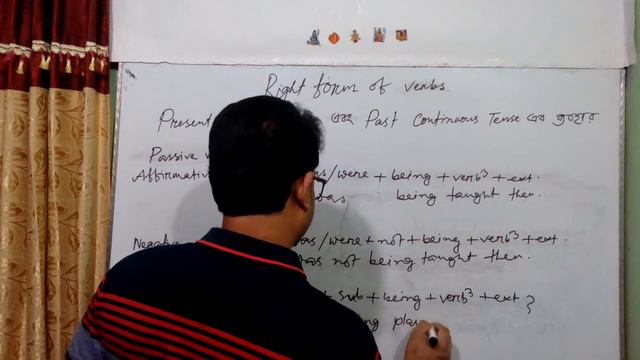 Right form of verbs
Present এবং Past Continuous Tense এর ব্যবহার
Passive
Affirmative as/were + being + verb³ + ext.
was being taught then.
Negative as/were + not + being + verb³ + ext.
was not being taught then.
+ sub + being + verb³ + ext ?